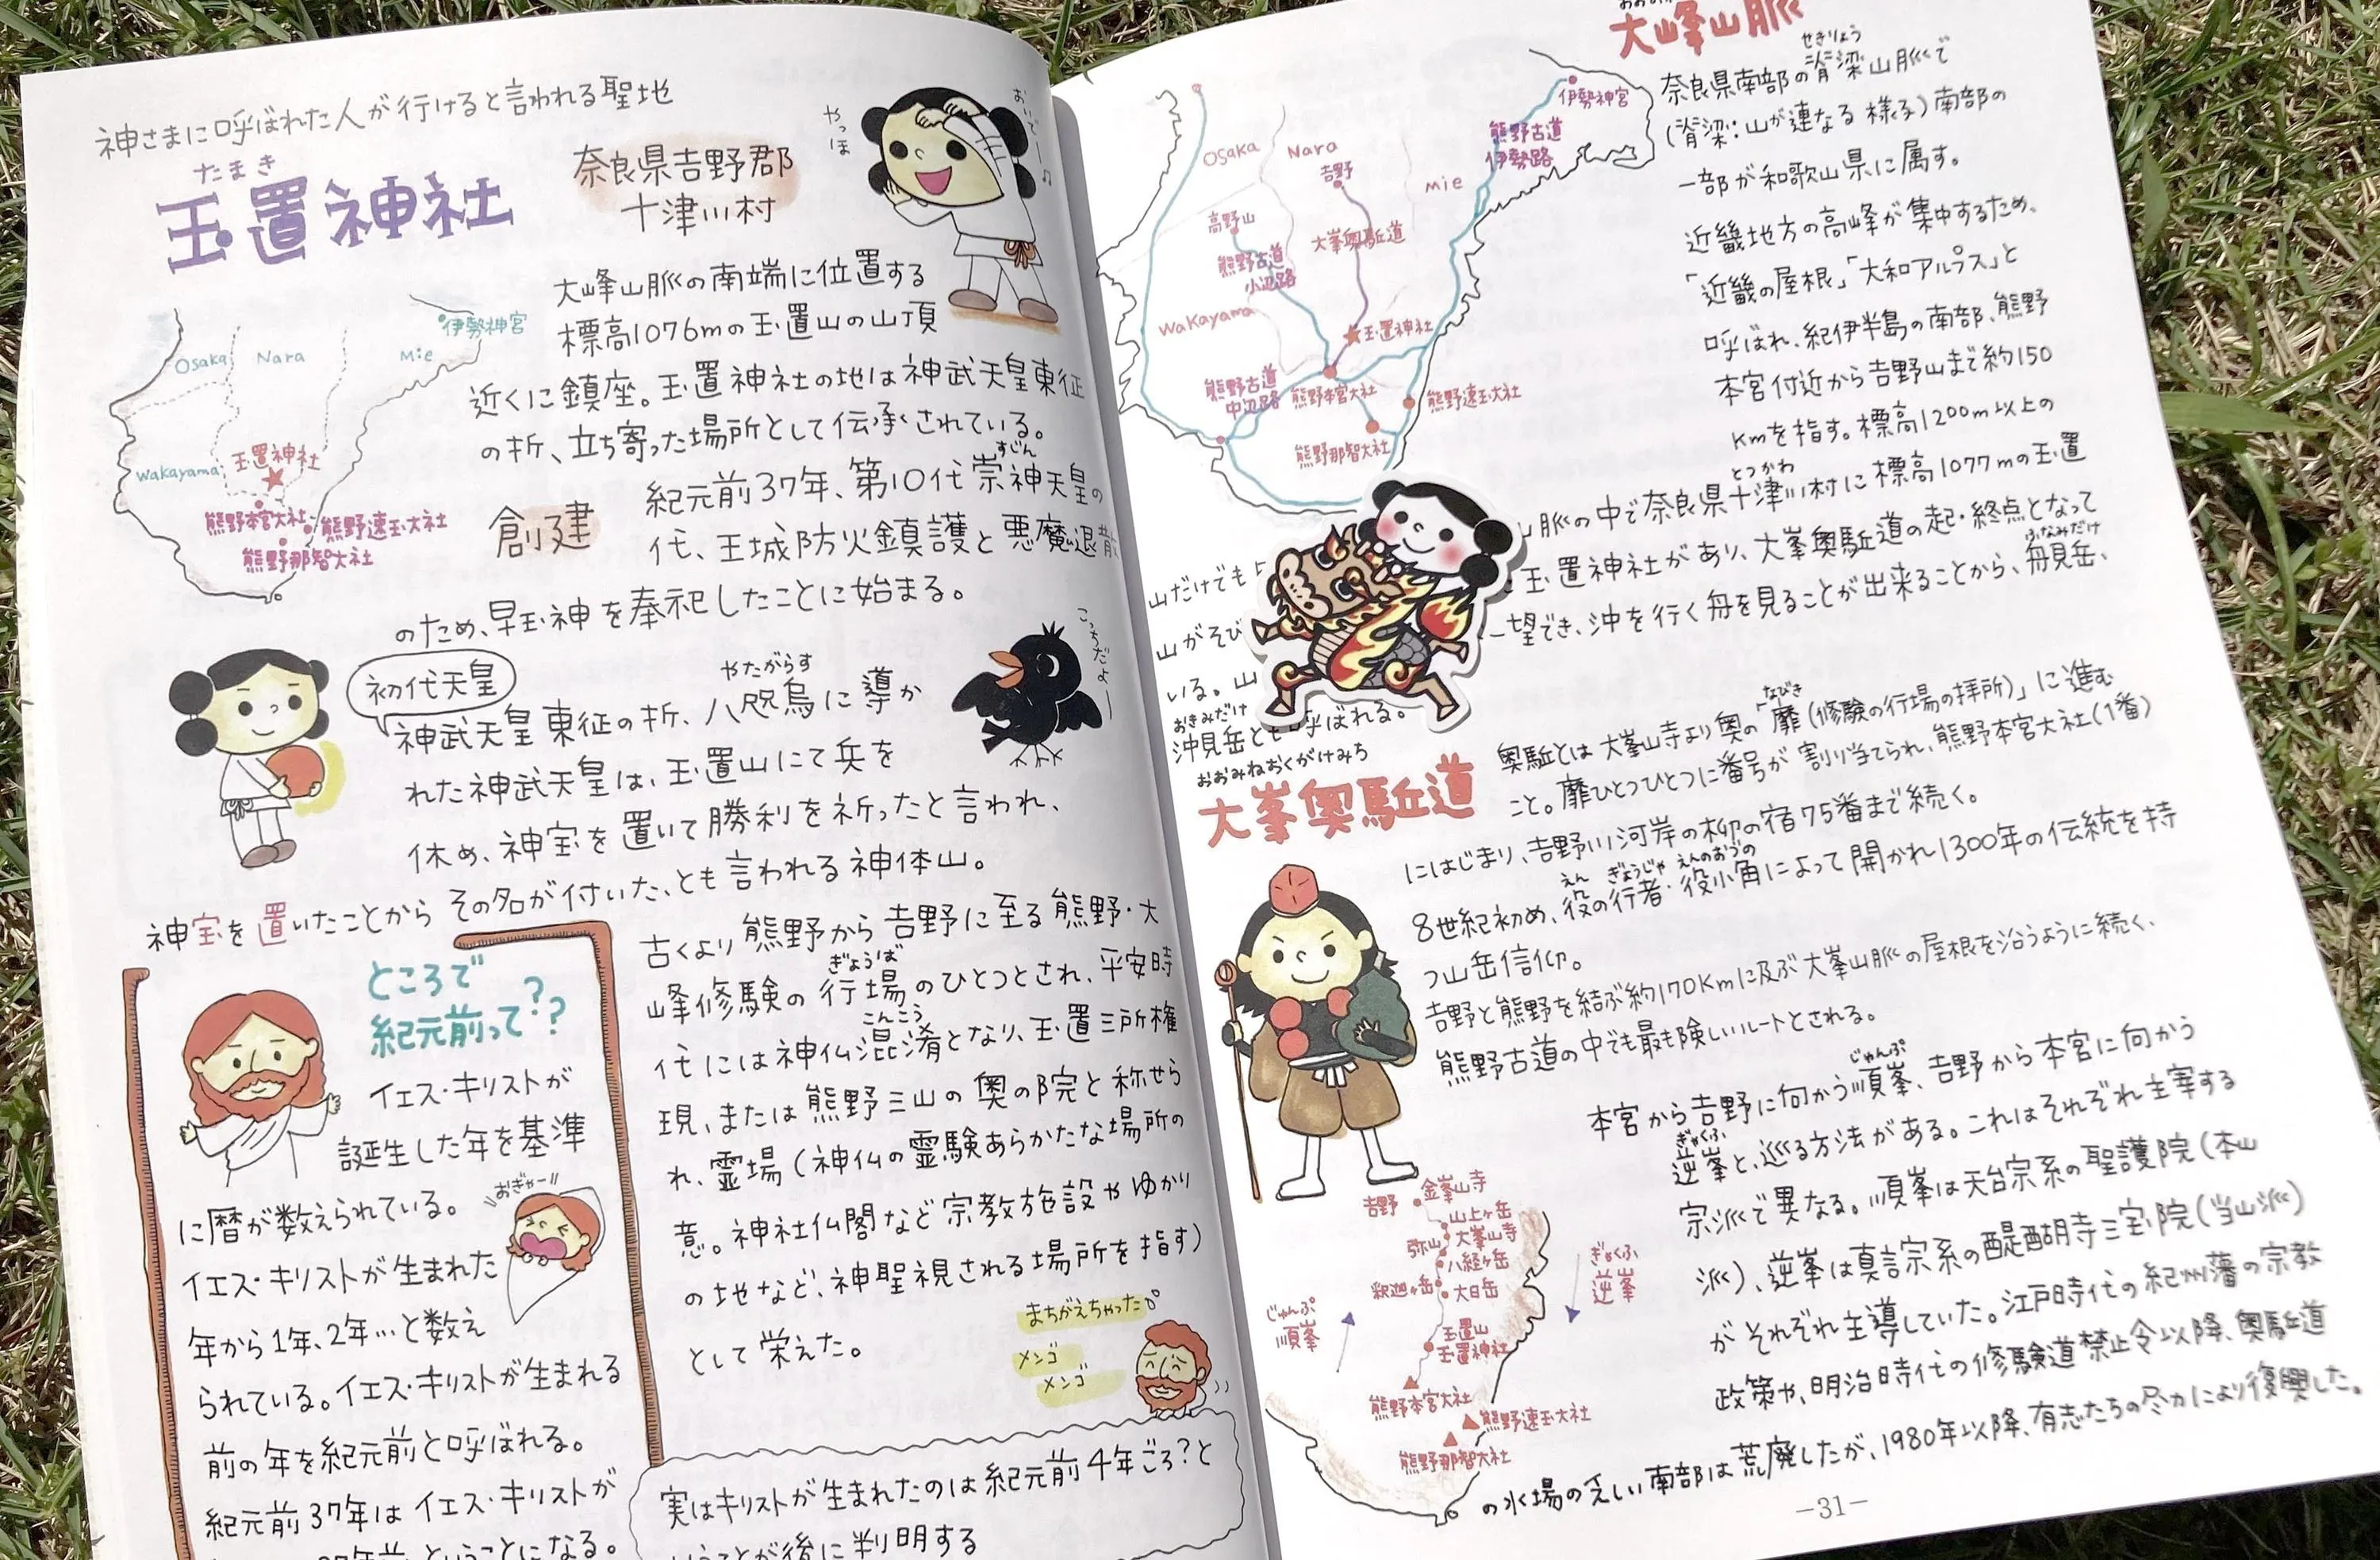 神さまに呼ばれた人が行けると言われる聖地
たまき
玉置神社
奈良県吉野郡
十津川村
やっほ
おいでー♫
大峰山脈の南端に位置する
標高1076mの玉置山の山頂
近くに鎮座。玉置神社の地は神武天皇東征
の折、立ち寄った場所として伝承されている。
Osaka
Nara
Mie
伊勢神宮
Wakayama
玉置神社
熊野本宮大社
熊野速玉大社
熊野那智大社
創建
すじん
紀元前37年、第10代崇神天皇の
代、王城防火鎮護と悪魔退散
のため、早玉神を奉祀したことに始まる。
初代天皇
やたがらす
神武天皇東征の折、八咫烏に導か
れた神武天皇は、玉置山にて兵を
休め、神宝を置いて勝利を祈ったと言われ、
神宝を置いたことからその名が付いた、とも言われる神体山。
こっちだよー
ところで
紀元前って??
イエス・キリストが
誕生した年を基準
に暦が数えられている。
おぎゃー
イエス・キリストが生まれた
年から1年、2年…と数え
られている。イエス・キリストが生まれる
前の年を紀元前と呼ばれる。
紀元前37年はイエス・キリストが
ということになる。
古くより熊野から吉野に至る熊野・大
峰修験の行場のひとつとされ、平安時
ぎょうば
代には神仏混淆となり、玉置三所権
こんこう
現、または熊野三山の奥の院と称せら
れ、霊場(神仏の霊験あらかたな場所の
意。神社仏閣など宗教施設やゆかり
の地など、神聖視される場所を指す)
として栄えた。
まちがえちゃった
メンゴ
メンゴ
実はキリストが生まれたのは紀元前4年ごろ?と
いうことが後に判明する
大峰山脈
せきりょう
奈良県南部の脊梁山脈で
(脊梁:山が連なる様子)南部の
一部が和歌山県に属す。
近畿地方の高峰が集中するため、
「近畿の屋根」「大和アルプス」と
呼ばれ、紀伊半島の南部、熊野
本宮付近から吉野山まで約150
Kmを指す。標高1200m以上の
とつかわ
山だけでも
山脈の中で奈良県十津川村に標高1077mの玉置
山がそび
玉置神社があり、大峯奥駈道の起・終点となって
いる。山
一望でき、沖を行く舟を見ることが出来ることから、舟見岳、
ふなみだけ
おきみだけ
沖見岳とも呼ばれる。
Osaka
Nara
Mie
Wakayama
伊勢神宮
熊野古道
伊勢路
吉野
高野山
大峯奥駈道
熊野古道
小辺路
玉置神社
熊野古道
中辺路
熊野本宮大社
熊野速玉大社
熊野那智大社
おおみねおくがけみち
大峯奥駈道
なびき
奥駈とは大峯山寺より奥の「靡(修験の行場の拝所)」に進む
こと。靡ひとつひとつに番号が割り当てられ、熊野本宮大社(1番)
にはじまり、吉野川河岸の柳の宿75番まで続く。
えん ぎょうじゃ えんのおづの
8世紀初め、役の行者・役小角によって開かれ1300年の伝統を持
つ山岳信仰。
吉野と熊野を結ぶ約170Kmに及ぶ大峯山脈の屋根を沿うように続く、
熊野古道の中でも最も険しいルートとされる。
じゅんぷ
本宮から吉野に向かう順峯、吉野から本宮に向かう
ぎゃくふ
逆峯と、巡る方法がある。これはそれぞれ主宰する
宗派で異なる。順峯は天台宗系の聖護院(本山
派)、逆峯は真言宗系の醍醐寺三宝院(当山派)
がそれぞれ主導していた。江戸時代の紀州藩の宗教
政策や、明治時代の修験道禁止令以降、奥駈道
の水場の乏しい南部は荒廃したが、1980年以降、有志たちの尽力により復興した。
吉野
金峯山寺
山上ヶ岳
大峯山寺
弥山
八経ヶ岳
釈迦ヶ岳
大日岳
玉置山
玉置神社
熊野本宮大社
熊野速玉大社
熊野那智大社
じゅんぷ
順峯
ぎゃくふ
逆峯
—31—